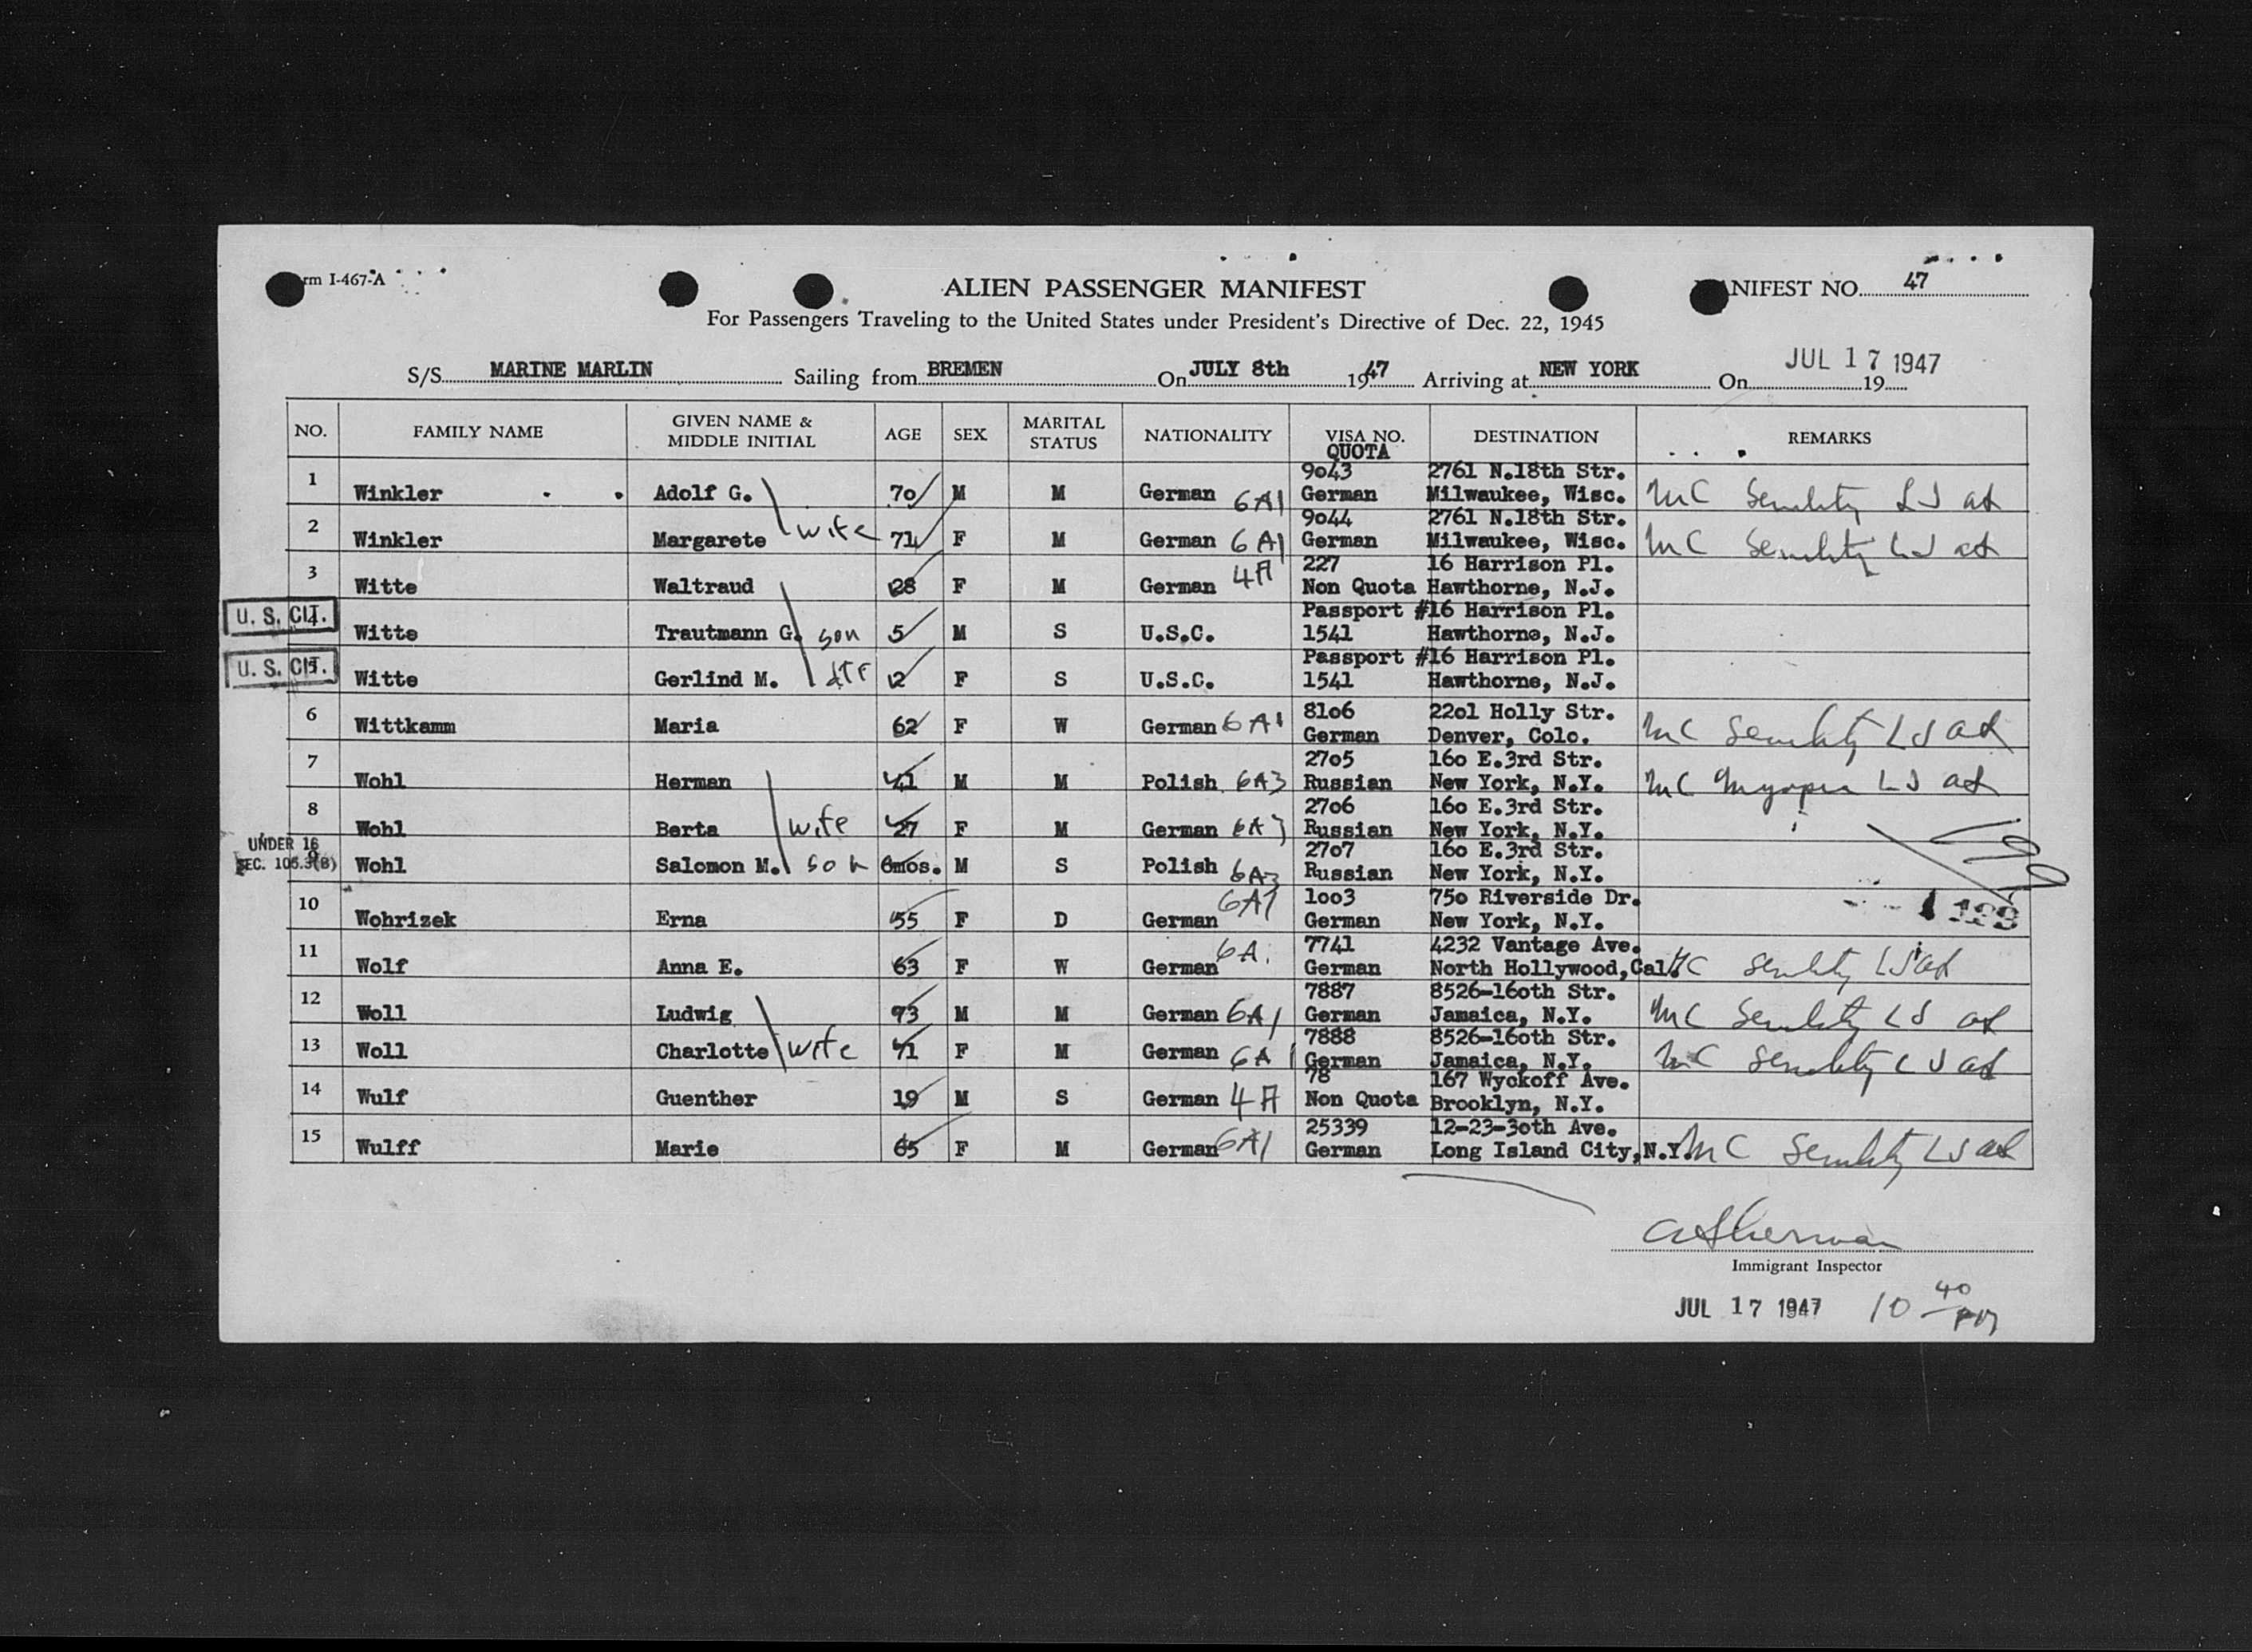 rm I-467-A
ALIEN PASSENGER MANIFEST
ANIFEST NO. 47
For Passengers Traveling to the United States under President's Directive of Dec. 22, 1945
S/S MARINE MARLIN Sailing from BREMEN On JULY 8th 1947 Arriving at NEW YORK On JUL 17 1947 19
NO. FAMILY NAME GIVEN NAME & MIDDLE INITIAL AGE SEX MARITAL STATUS NATIONALITY VISA NO. QUOTA DESTINATION REMARKS
9043 2761 N.18th Str.
1 Winkler Adolf G. 70 M M German 6A1 German Milwaukee, Wisc. MC Senility LJ at
9044 2761 N.18th Str.
2 Winkler Margarete wife 71 F M German 6A1 German Milwaukee, Wisc. MC Senility LJ at
227 16 Harrison Pl.
3 Witte Waltraud 28 F M German 4A Non Quota Hawthorne, N.J.
Passport #16 Harrison Pl.
U. S. CIT. 4 Witte Trautmann G. son 5 M S U.S.C. 1541 Hawthorne, N.J.
Passport #16 Harrison Pl.
U. S. CIT. 5 Witte Gerlind M. dtr 2 F S U.S.C. 1541 Hawthorne, N.J.
8106 2201 Holly Str.
6 Wittkamm Maria 62 F W German 6A1 German Denver, Colo. MC Senility LJ at
2705 160 E.3rd Str.
7 Wohl Herman 41 M M Polish 6A3 Russian New York, N.Y. MC Myopia LJ at
2706 160 E.3rd Str.
8 Wohl Berta wife 27 F M German 6A3 Russian New York, N.Y.
UNDER 16
SEC. 106.3(B)
2707 160 E.3rd Str.
9 Wohl Salomon M. son 6mos. M S Polish 6A3 Russian New York, N.Y.
1003 750 Riverside Dr.
10 Wohrizek Erna 55 F D German 6A1 German New York, N.Y.
7741 4232 Vantage Ave.
11 Wolf Anna E. 63 F W German 6A German North Hollywood,Cal. MC Senility LJ at
7887 8526-160th Str.
12 Woll Ludwig 73 M M German 6A1 German Jamaica, N.Y. MC Senility LJ at
7888 8526-160th Str.
13 Woll Charlotte wife 71 F M German 6A1 German Jamaica, N.Y. MC Senility LJ at
78 167 Wyckoff Ave.
14 Wulf Guenther 19 M S German 4A Non Quota Brooklyn, N.Y.
25339 12-23-30th Ave.
15 Wulff Marie 65 F M German 6A1 German Long Island City,N.Y. MC Senility LJ at
Sherman
Immigrant Inspector
JUL 17 1947 10 40 PM